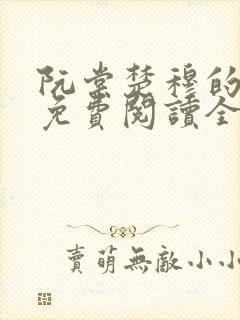 阮棠楚穆的
免費閱讀全
賣萌無敵小小